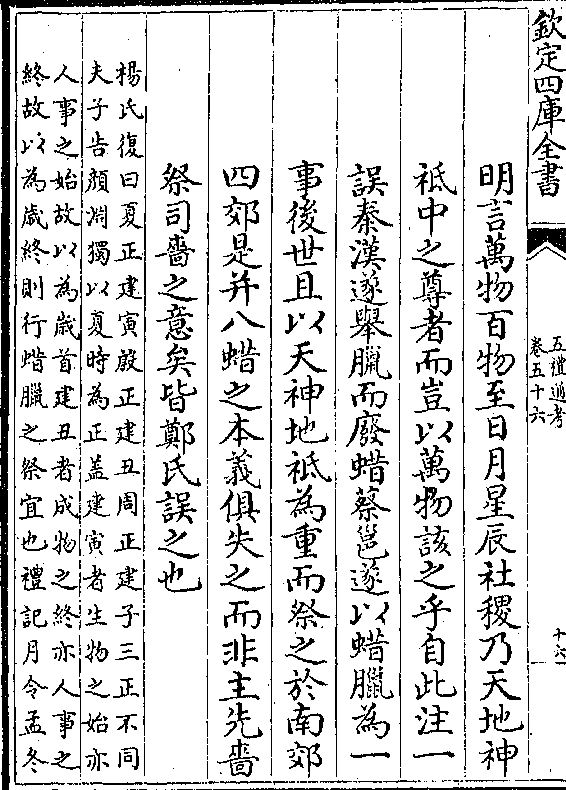 欽定四庫全書
五禮通考
卷五十六
十六
明言萬物百物至日月星辰社稷乃天地神
祗中之尊者而豈以萬物該之乎自此注一
誤秦漢遂舉臘而廢蜡蔡邕遂以蜡臘為一
事後世且以天神地祗為重而祭之於南郊
四郊是并八蜡之本義俱失之而非主先嗇
祭司嗇之意矣皆鄭氏誤之也
楊氏復曰夏正建寅殷正建丑周正建子三正不同
夫子告顔淵獨以夏時為正蓋建寅者生物之始亦
人事之始故以為歲首建丑者成物之終亦人事之
終故以為歲終則行蜡臘之祭宜也禮記月令孟冬